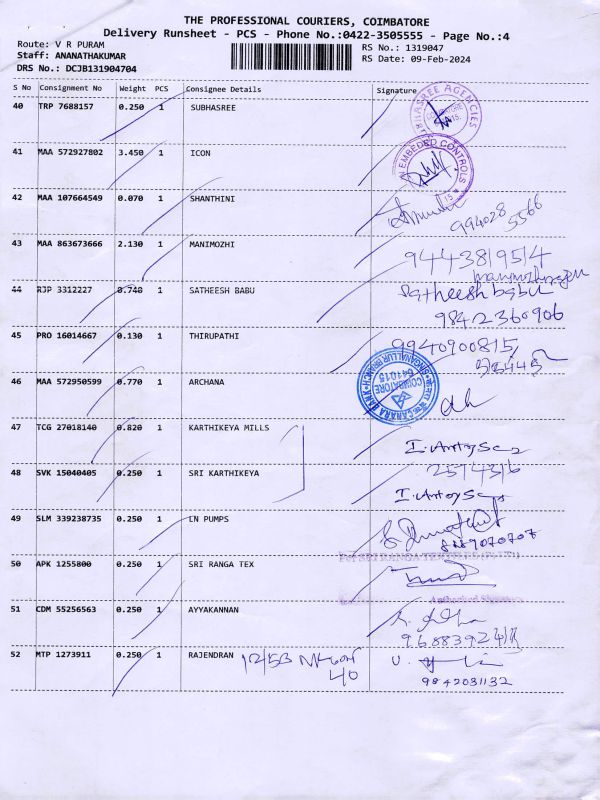 THE PROFESSIONAL COURIERS, COIMBATORE
Delivery Runsheet - PCS - Phone No.:0422-3505555 - Page No.:4
Route: V R PURAM
Staff: ANANATHAKUMAR
DRS No.: DCJB131904704
RS No.: 1319047
RS Date: 09-Feb-2024
S No Consignment No Weight PCS Consignee Details Signature
40 TRP 7688157 0.250 1 SUBHASREE
41 MAA 572927802 3.450 1 ICON
EMBEDED CONTROLS
42 MAA 107664549 0.070 1 SHANTHINI
994028
5566
43 MAA 863673666 2.130 1 MANIMOZHI
9443819514
44 RJP 3312227 0.740 1 SATHEESH BABU
Satheesh babu
9842360906
45 PRO 16014667 0.130 1 THIRUPATHI
9940900815
46 MAA 572950599 0.770 1 ARCHANA
CANARA BANK
SINGANALLUR BRANCH
COIMBATORE
641015
47 TCG 27018140 0.820 1 KARTHIKEYA MILLS
2574316
48 SVK 15040405 0.250 1 SRI KARTHIKEYA
49 SLM 339238735 0.250 1 LN PUMPS
50 APK 1255800 0.250 1 SRI RANGA TEX
51 CDM 55256563 0.250 1 AYYAKANNAN
52 MTP 1273911 0.250 1 RAJENDRAN 12/53
40
9842031132